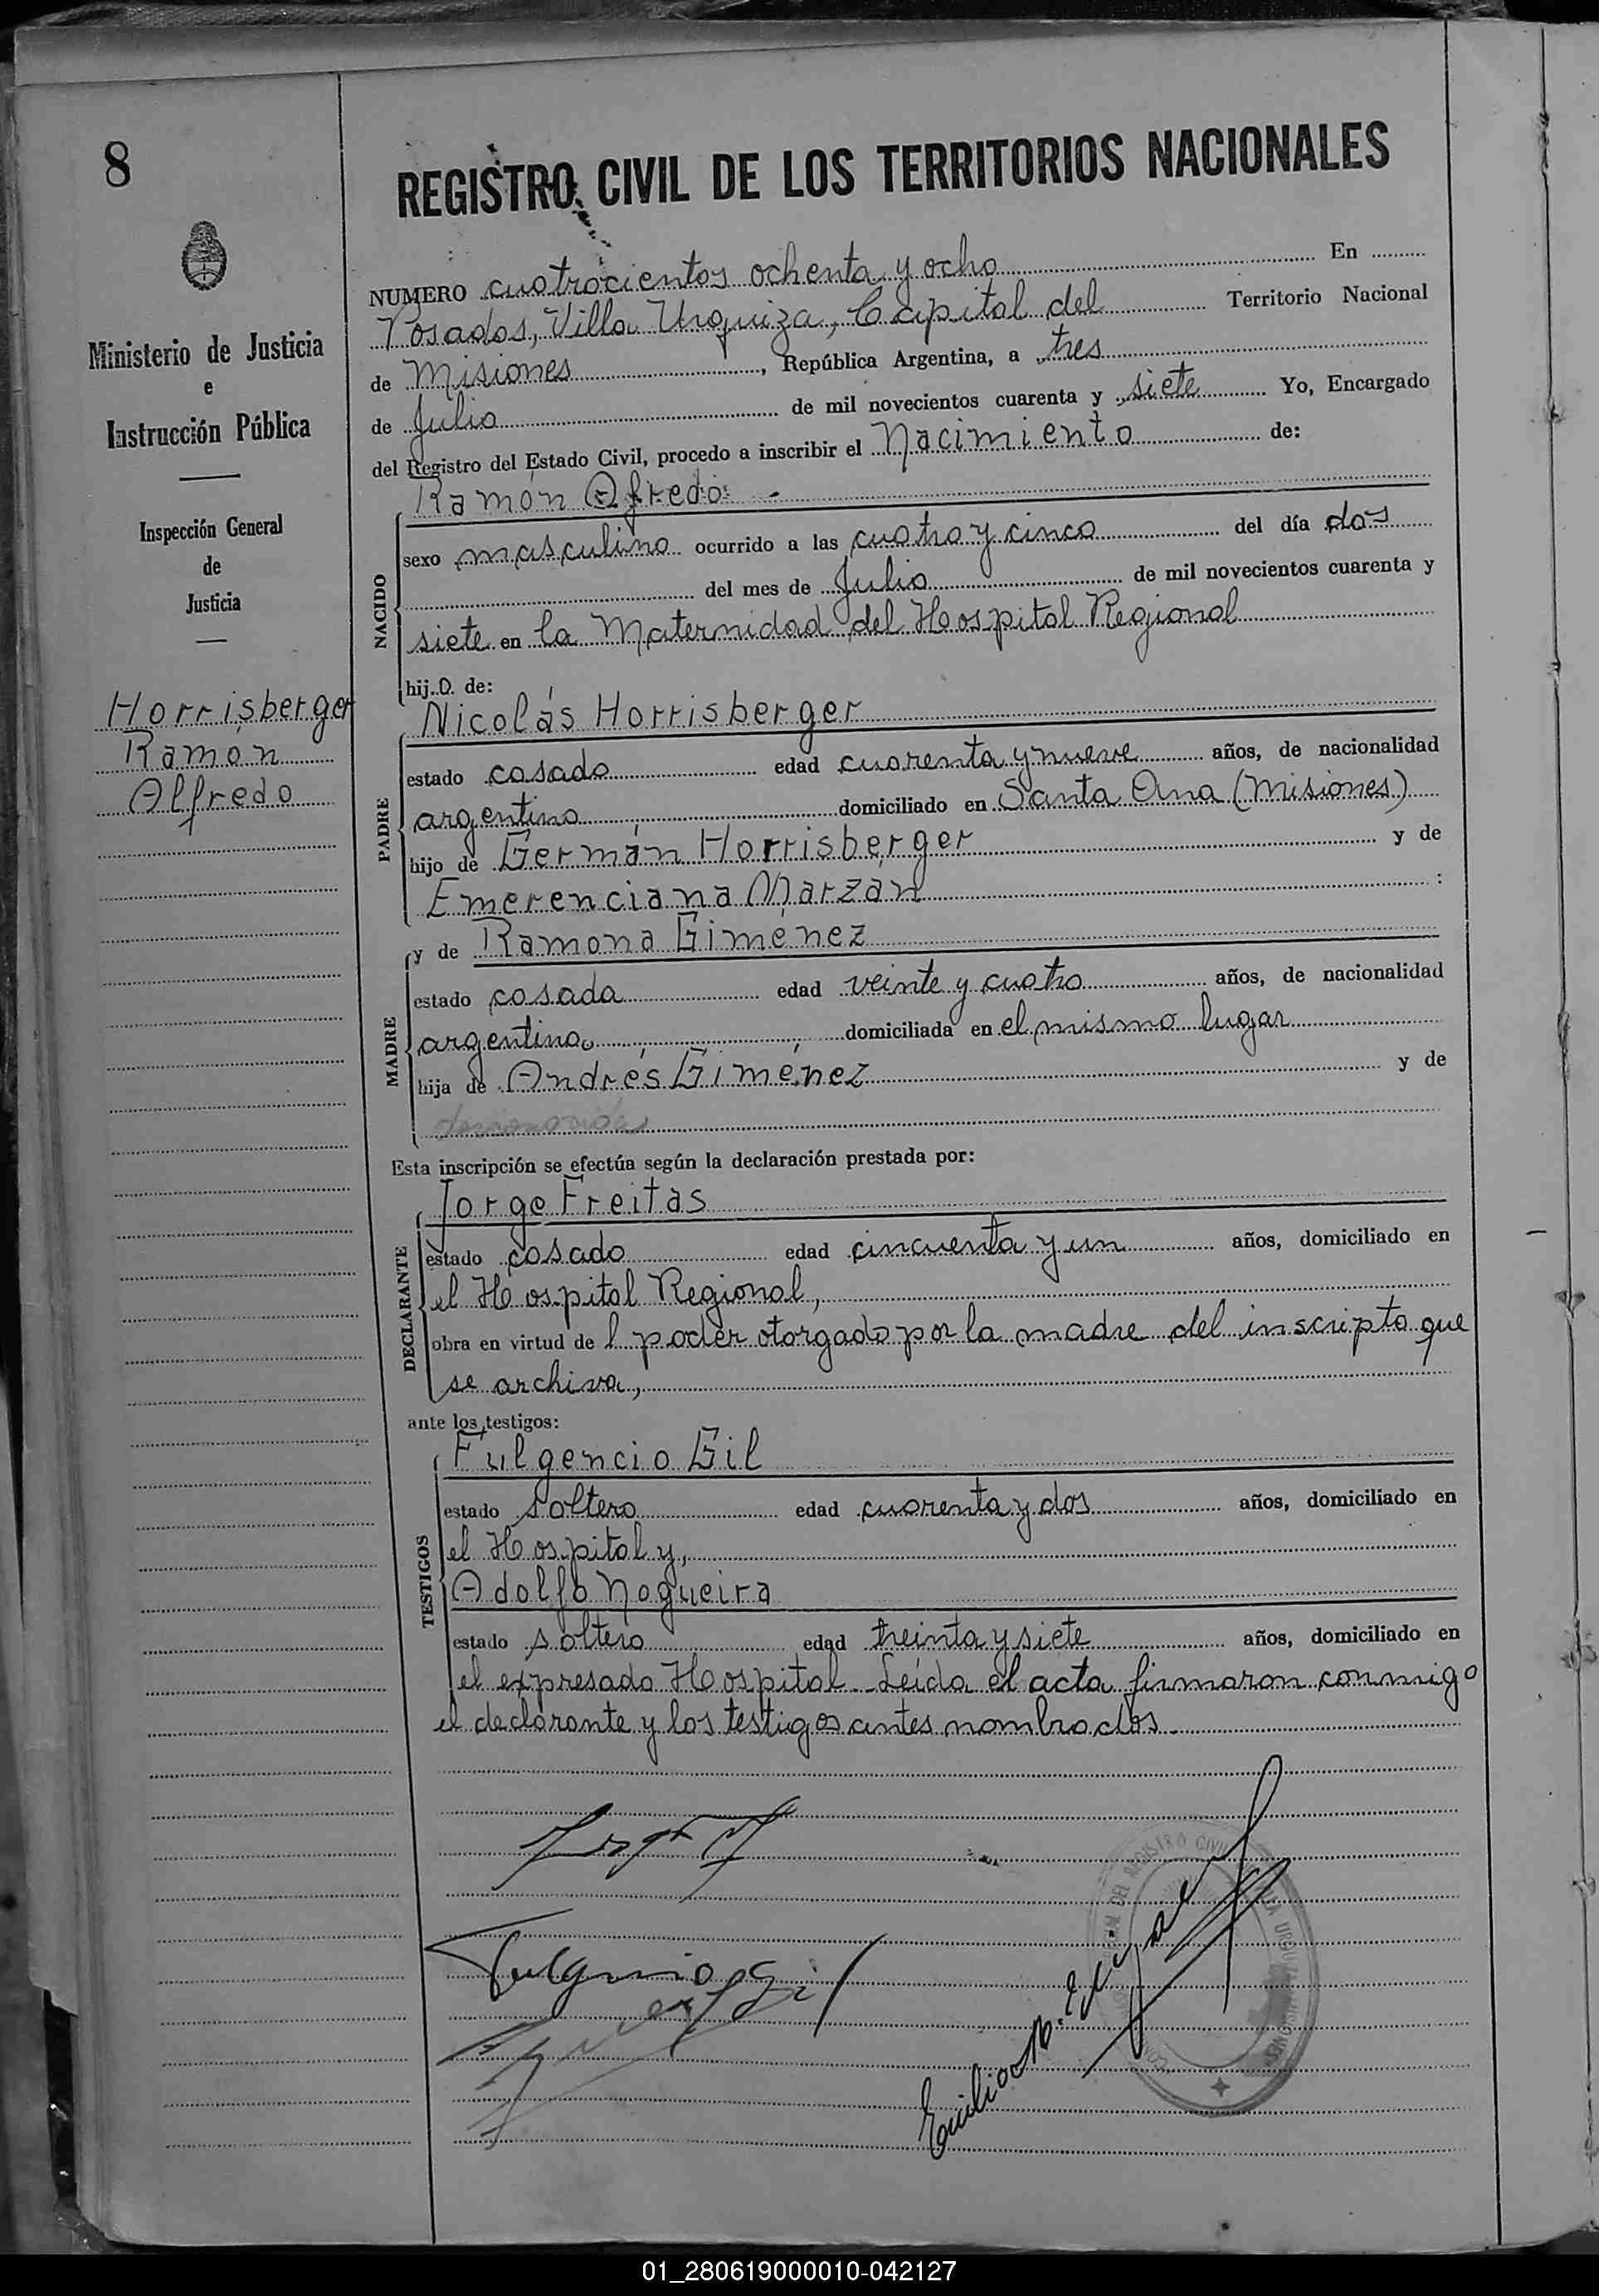 8
REGISTRO CIVIL DE LOS TERRITORIOS NACIONALES
Ministerio de Justicia
e
Instrucción Pública
Inspección General
de
Justicia
Horrisberger
Ramón
Alfredo
NUMERO cuatrocientos ochenta y ocho En
Posadas, Villa Urquiza, Capital del Territorio Nacional
de Misiones, República Argentina, a tres
de Julio de mil novecientos cuarenta y siete Yo, Encargado
del Registro del Estado Civil, procedo a inscribir el Nacimiento de:
NACIDO
Ramón Alfredo -
sexo masculino ocurrido a las cuatro y cinco del día dos
del mes de Julio de mil novecientos cuarenta y
siete en la Maternidad del Hospital Regional
hijo de:
PADRE
Nicolás Horrisberger
estado casado edad cuarenta y nueve años, de nacionalidad
argentino domiciliado en Santa Ana (Misiones)
hijo de Germán Horrisberger y de
Emerenciana Marzán :
MADRE
y de Ramona Giménez
estado casada edad veinte y cuatro años, de nacionalidad
argentina domiciliada en el mismo lugar
hija de Andrés Giménez y de
desconocida
Esta inscripción se efectúa según la declaración prestada por:
DECLARANTE
Jorge Freitas
estado casado edad cincuenta y un años, domiciliado en
el Hospital Regional,
obra en virtud del poder otorgado por la madre del inscripto que
se archiva,
ante los testigos:
TESTIGOS
Fulgencio Gil
estado soltero edad cuarenta y dos años, domiciliado en
el Hospital y,
Adolfo Nogueira
estado soltero edad treinta y siete años, domiciliado en
el expresado Hospital. Leída el acta firmaron conmigo
el declarante y los testigos antes nombrados.
Fulgencio Gil
Emilio
DEL REGISTRO CIVIL
01_280619000010-042127